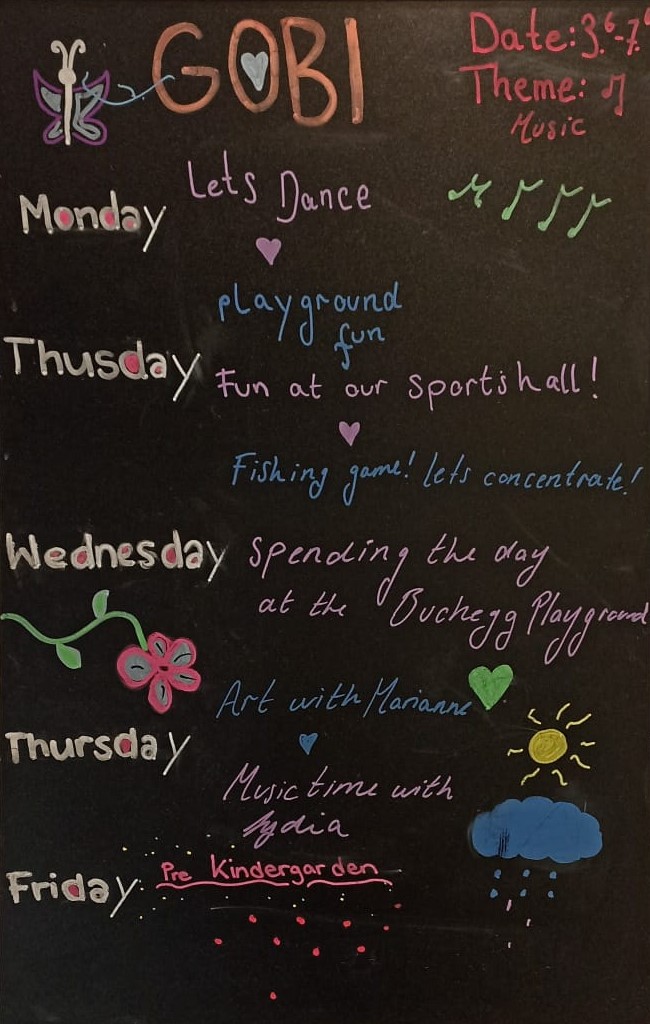 GOBI
Date: 3.6-7.6
Theme:
Music
Monday
Lets Dance
playground
fun
Thusday
Fun at our sportshall!
Fishing game! lets concentrate!
Wednesday
Spending the day
at the Buchegg Playground
Art with Marianne
Thursday
Music time with
lydia
Friday
Pre Kindergarden